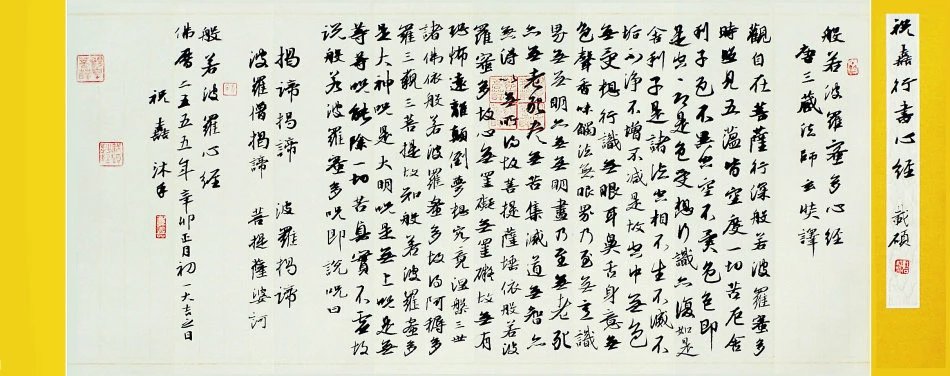 祝嘉行书心经
般若波羅蜜多心經
唐三藏法師玄奘譯
觀自在菩薩行深般若波羅蜜多
時照見五蘊皆空度一切苦厄舍
利子色不異空空不異色色即
是空空即是色受想行識亦復如是
舍利子是諸法空相不生不滅不
垢不淨不增不減是故空中無色
無受想行識無眼耳鼻舌身意無
色聲香味觸法無眼界乃至無意識
界無無明亦無無明盡乃至無老死
亦無老死盡無苦集滅道無智亦
無得以無所得故菩提薩埵依般若波
羅蜜多故心無罣礙無罣礙故無有
恐怖遠離顛倒夢想究竟涅槃三世
諸佛依般若波羅蜜多故得阿耨多
羅三藐三菩提故知般若波羅蜜多
是大神咒是大明咒是無上咒是無
等等咒能除一切苦真實不虛故
說般若波羅蜜多咒即說咒曰
揭諦揭諦 波羅揭諦
波羅僧揭諦 菩提薩婆訶
般若波羅心經
佛曆二五五五年辛卯正月初一大吉之日
祝嘉沐手